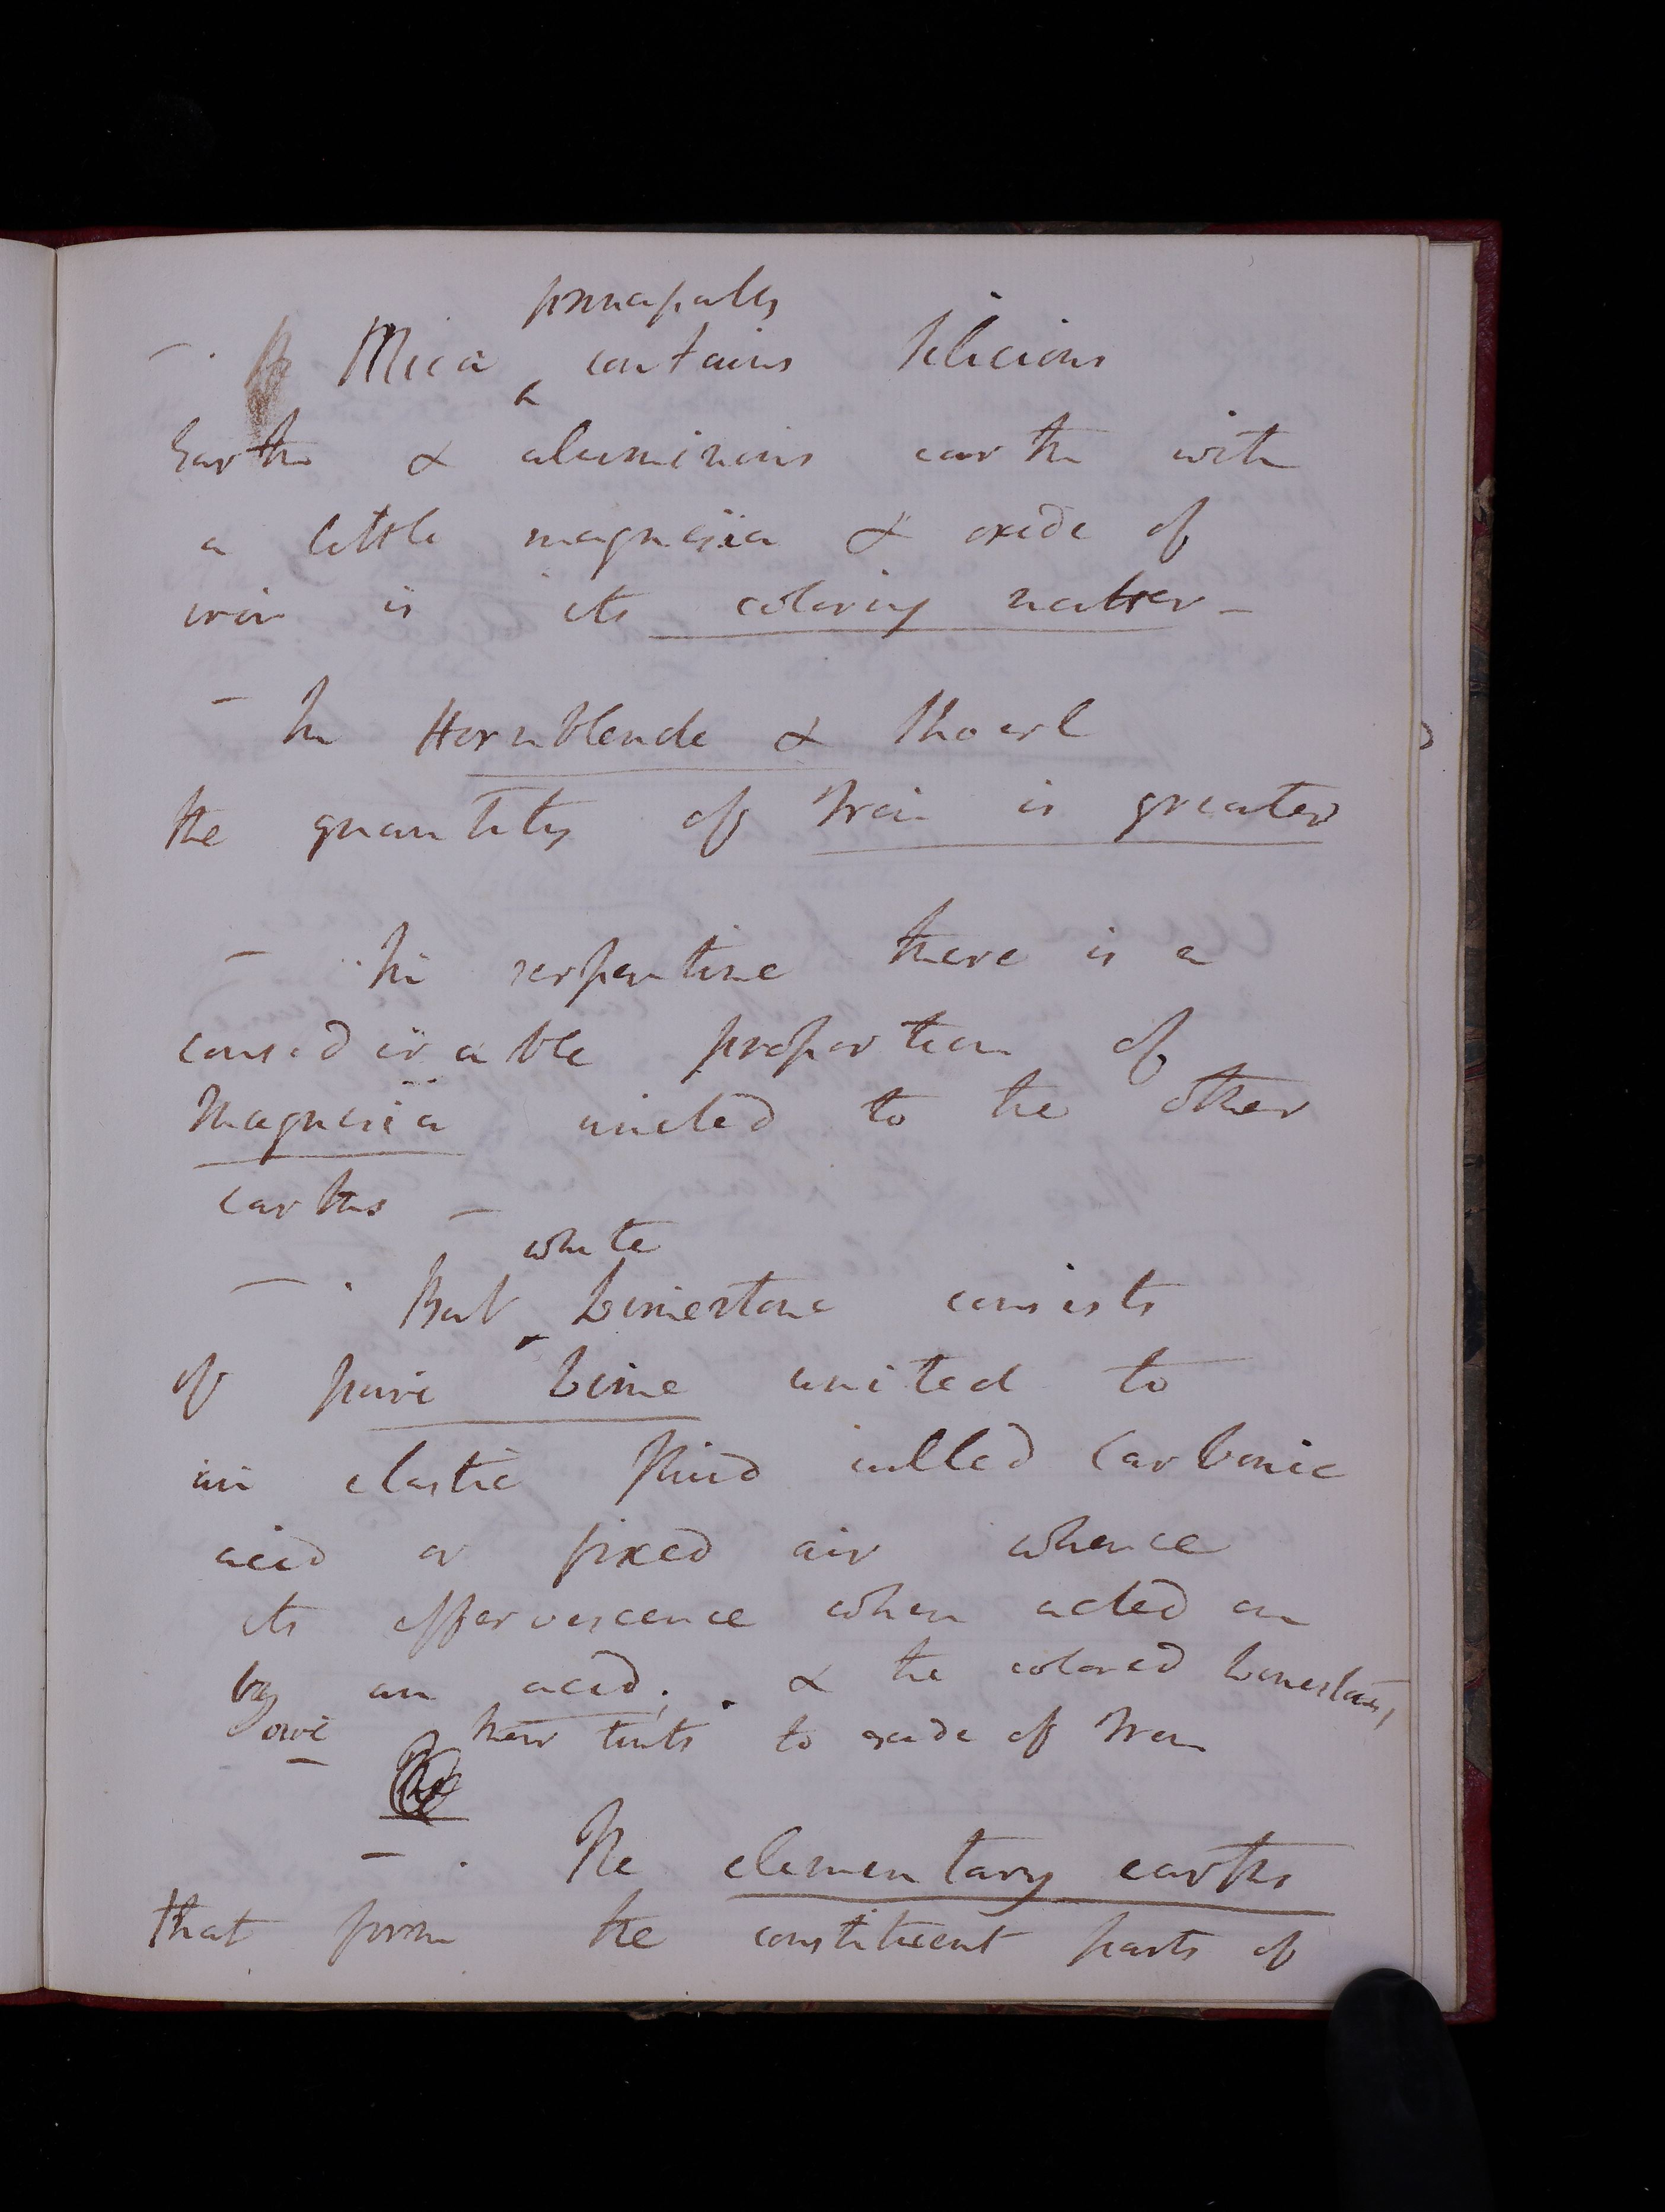 principally
— . Mica contains silicious
Earth & aluminous earth with
a little magnesia & oxide of
iron is its coloring matter –
– In Hornblende & Shoerl
the quantity of Iron is greater
– In serpentine there is a
considerable proportion of
Magnesia united to the other
earths –
white
– . But Limestone consists
of pure Lime united to
an elastic fluid called Carbonic
acid or fixed air whence
its effervescence when acted on
by an acid; . & the colored Limestones,
owe their tints to oxide of Iron
– . The elementary earths
that form the constituent parts of